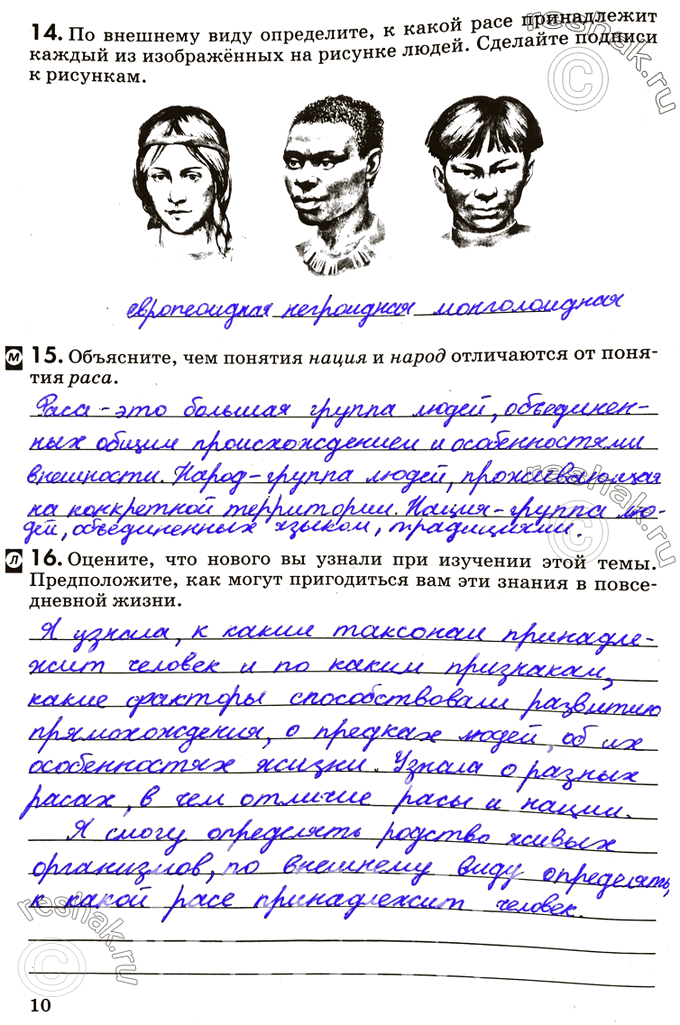 14. По внешнему виду определите, к какой расе принадлежит
каждый из изображённых на рисунке людей. Сделайте подписи
к рисункам.
европеоидная негроидная монголоидная
М 15. Объясните, чем понятия нация и народ отличаются от поня-
тия раса.
Раса - это большая группа людей, объединен-
ных общим происхождением и особенностями
внешности. Народ - группа людей, проживающая
на конкретной территории. Нация - группа лю-
дей, объединенных языком, традициями.
Л 16. Оцените, что нового вы узнали при изучении этой темы.
Предположите, как могут пригодиться вам эти знания в повсе-
дневной жизни.
Я узнала, к каким таксонам принадле-
жит человек и по каким признакам,
какие факторы способствовали развитию
прямохождения, о предках людей, об их
особенностях жизни. Узнала о разных
расах, в чем отличие расы и нации.
Я смогу определять родство живых
организмов, по внешнему виду определять,
к какой расе принадлежит человек.
10
©reshak.ru
©reshak.ru
©reshak.ru